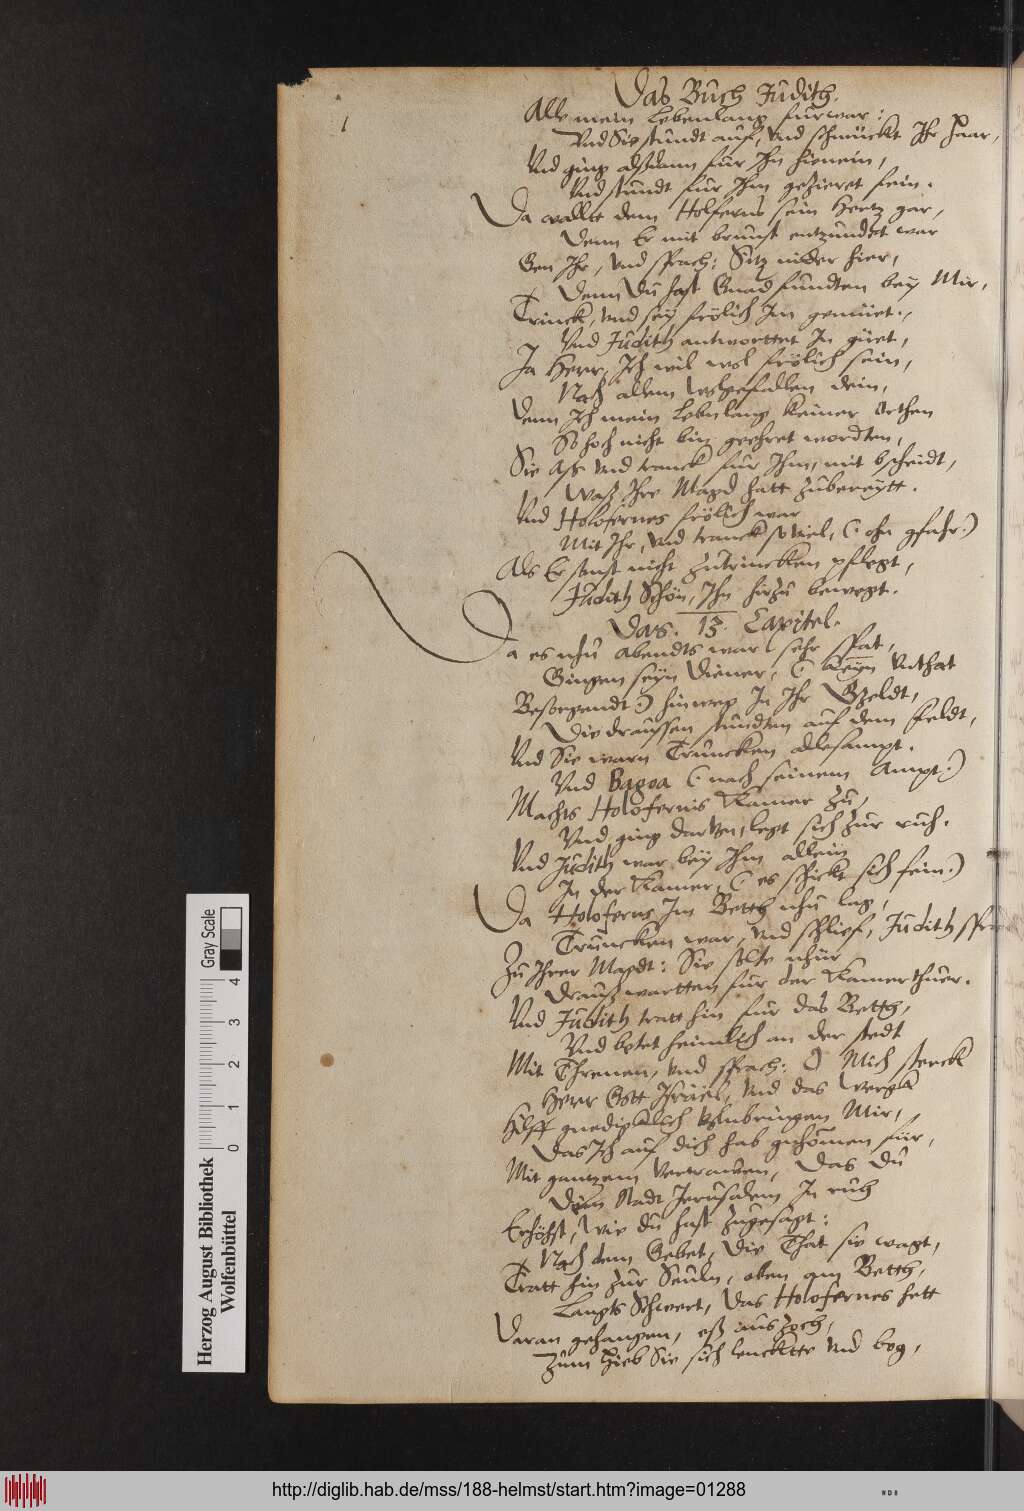 Das Buch Judith.
Alle mein Lebenlang furwar:
Vnd Sie stundt auf, vnd schmückt Ihr Haar,
Vnd ging alsdann fur Ihn hienein,
Vnd stundt fur Ihm gezieret fein.
Da wallte dem Holferns sein Hertz gar,
Denn Er mit brunst entzundet war
Gen Ihr, vnd sprach: Sitz nider hier,
Denn Du hast Gnad fundten bey Mir,
Trinck, vnd sey frölich Im gemüet.
Vnd Judith antworttet In güet,
Ja Herr, Ich wil wol frölich sein,
Nach allem wolgefallen dein,
Denn Ich mein Lebnlang keiner Orthen
So hoch nicht bin geehret wordten,
Sie Aß vnd tranck fur Ihm, mit bscheidt,
Waß Ihre Magd hatt zubereytt.
Vnd Holofernes frölich war
Mit Ihr, vnd tranck so viel, (: ohn gfahr:)
Als Er sonst nicht zutrincken pflegt,
Judith Schön, Ihn hirzu bewegt.
Das. 13. Capitel.
Da es nhu abendts war sehr spat,
Gingen seyn Diener, (: keyn Vnthat
Besorgendt:) hinweg In Ihr Gzeldt,
Die draussen stundten auf dem Feldt,
Vnd Sie warn Truncken allesampt.
Vnd Bagoa (: nach seinem Ampt:)
Machts Holofernis Kamer zu,
Vnd ging darvon, legt sich zur ruh.
Vnd Judith war bey Ihm allein
In der Kamer, (: es schickt sich fein:)
Da Holoferns Im Betth nhu lag,
Truncken war, vnd schlief, Judith
Zu Ihrer Magdt: Sie solte nhur
Drauß wartten fur der Kamerthuer.
Vnd Judith tratt hin fur das Betth,
Vnd betet heimlich an der stedt
Mit Threnen, vnd sprach: O Mich sterck
Herr Gott Israel, vnd das Werck
Hilff gnediglich volnbringen Mir,
Das Ich auf dich hab gnohmen für,
Mit gantzem Vertrawen, Das Du
Dein Stadt Jerusalem In ruh
Erhöhst, Wie du hast zugesagt:
Nach dem Gebet, Die That sie wagt,
Tratt hin zur Seuln, oben am Betth,
Langts Schwert, Das Holofernes hett
Daran gehangen, eß auszoch,
Zum Hieb Sie sich lenckte vnd bog,
Herzog August Bibliothek
Wolfenbüttel
0 1 2 3 4
Gray Scale
http://diglib.hab.de/mss/188-helmst/start.htm?image=01288